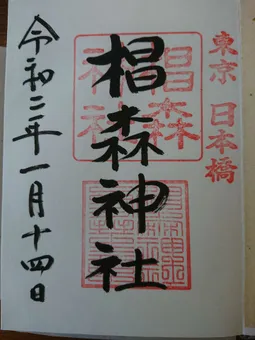 東京 日本橋
椙森
神社
椙森神社
令和二年一月十四日